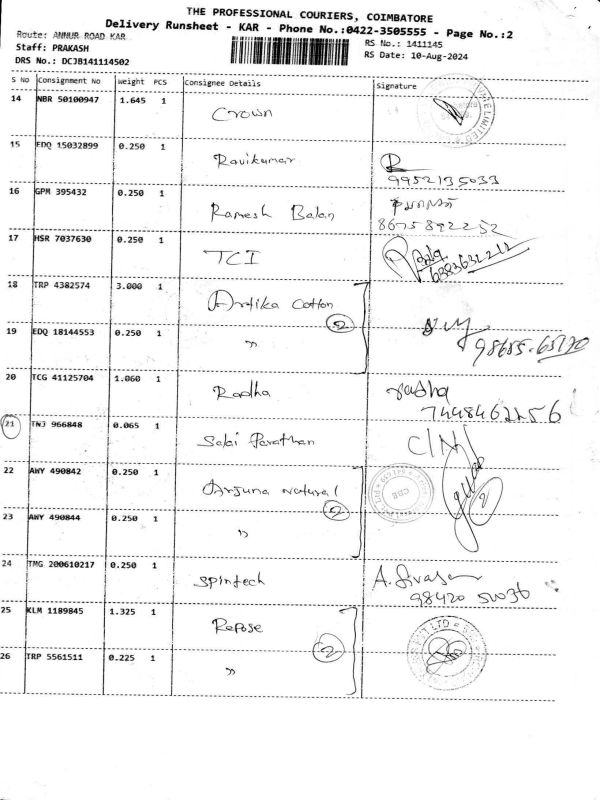 THE PROFESSIONAL COURIERS, COIMBATORE
Delivery Runsheet - KAR - Phone No.:0422-3505555 - Page No.:2
Route: ANNUR ROAD KAR
RS No.: 1411145
Staff: PRAKASH
RS Date: 10-Aug-2024
DRS No.: DCJB141114502
S No Consignment No Weight PCS Consignee Details Signature
14 NBR 50100947 1.645 1 Crown
15 EDQ 15032899 0.250 1 Ravikumar
9952135033
16 GPM 395432 0.250 1 Ramesh Balan
8675892252
17 HSR 7037630 0.250 1 TCI
18 TRP 4382574 3.000 1 Artika Cotton
2
19 EDQ 18144553 0.250 1 "
98655-65170
20 TCG 41125704 1.060 1 Radha radha
7448462256
21 TNJ 966848 0.065 1 Selai Parathan
22 AWY 490842 0.250 1 Arjuna Natural
2 2
23 AWY 490844 0.250 1 "
24 TMG 200610217 0.250 1 Spintech A. Sivasan
98420 51036
25 KLM 1189845 1.325 1 Repose
2
26 TRP 5561511 0.225 1 "